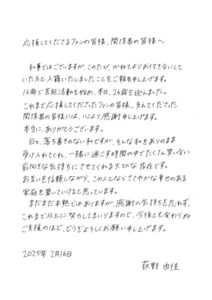 応援してくださるファンの皆様、関係者の皆様へ
私事ではございますが、このたび、かねてよりお付き合いして
いた方と入籍いたしましたことをご報告申し上げます。
16歳で芸能活動を始め、本日、26歳を迎えました。
これまで応援してくださったファンの皆様、支えてくださった
関係者の皆様には、心より感謝申し上げます。
本当に、ありがとうございます。
日々、落ち着きのない私ですが、そんな私をありのまま
受け入れてくれ、一緒に過ごす時間の中でたくさん笑い合い
前向きな気持ちにさせてくれる大切な存在です。
お互いを信頼しながら、この人とならささやかな幸せのある
家庭を築いていけると思っています。
まだまだ未熟ではありますが、感謝の気持ちを忘れず、
これまで以上に努力してまいりますので、今後とも変わらぬ
ご支援のほど、どうぞよろしくお願い申し上げます。
2025年2月16日
荻野 由佳